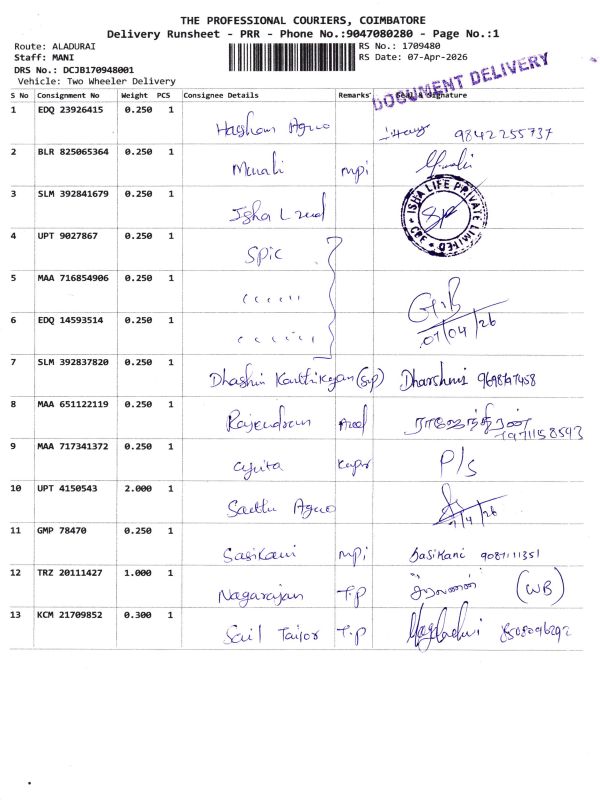 THE PROFESSIONAL COURIERS, COIMBATORE
Delivery Runsheet - PRR - Phone No.:9047080280 - Page No.:1
Route: ALADURAI
RS No.: 1709480
Staff: MANI
RS Date: 07-Apr-2026
DRS No.: DCJB170948001
Vehicle: Two Wheeler Delivery
DOCUMENT DELIVERY
S No Consignment No Weight PCS Consignee Details Remarks Seal & Signature
1 EDQ 23926415 0.250 1 9842255737
2 BLR 825065364 0.250 1 Murali mpi
3 SLM 392841679 0.250 1 Isha
ISHA LIFE PRIVATE LIMITED CBE
4 UPT 9027867 0.250 1 SPIC
5 MAA 716854906 0.250 1
6 EDQ 14593514 0.250 1
07/04/26
7 SLM 392837820 0.250 1 Dharshini
8 MAA 651122119 0.250 1 Rajendran ராஜேந்திரன்
9 MAA 717341372 0.250 1 P/S
10 UPT 4150543 2.000 1 Sakthi
11 GMP 78470 0.250 1 Sasikani mpi Sasikani
12 TRZ 20111427 1.000 1 Nagarajan T.P சரவணன் (WB)
13 KCM 21709852 0.300 1 Sail Tailor T.P